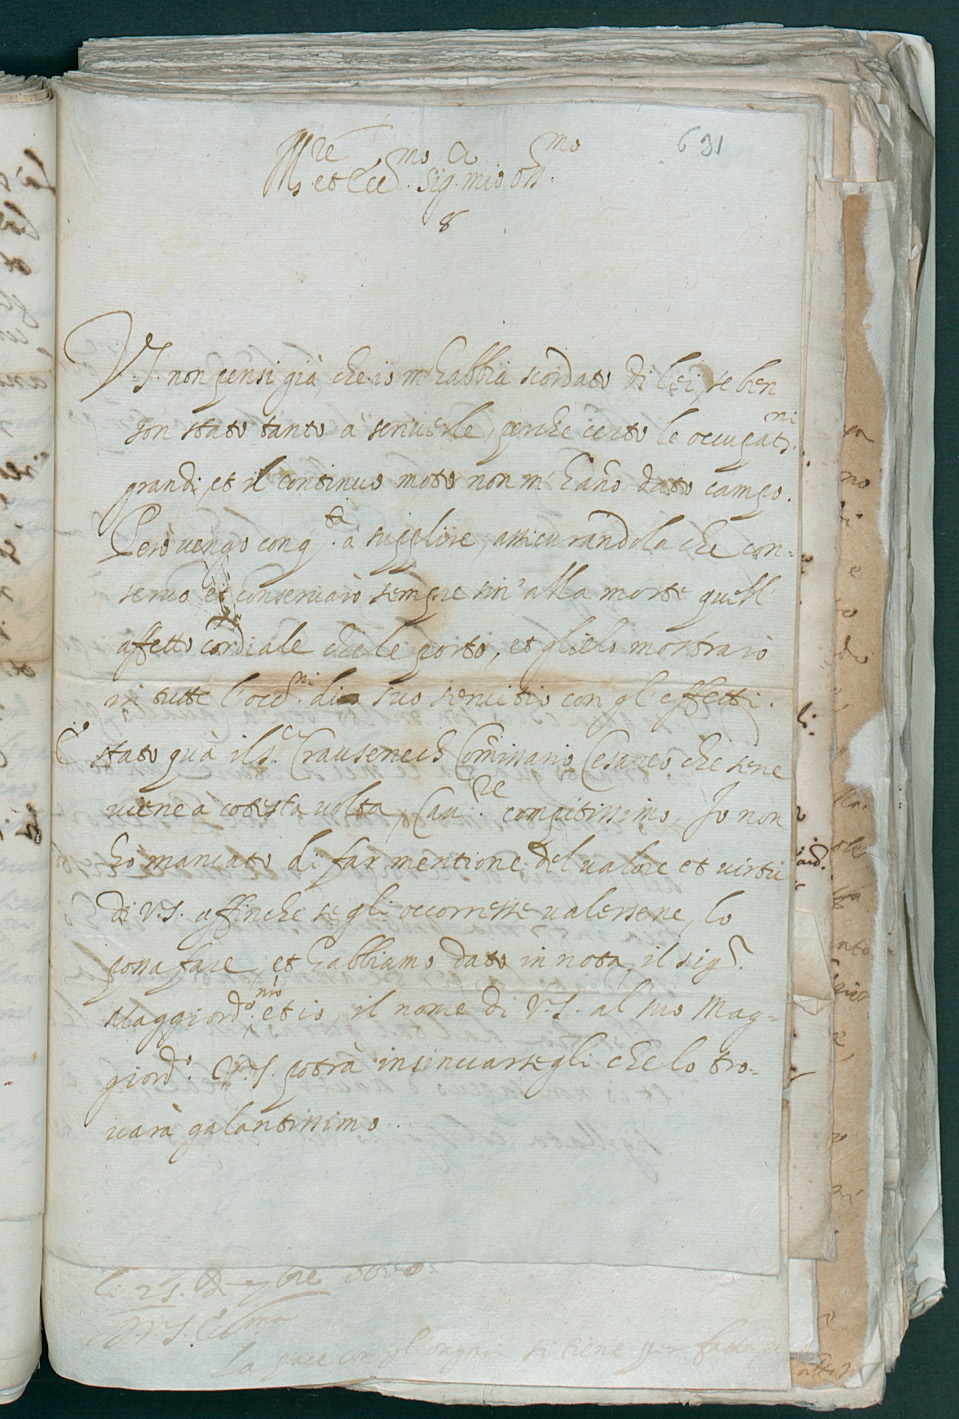 631
M.re et Ecc.mo Sig. mio Oss.mo
8
V.S. non pensi già, che io m'habbia scordato di lei, se ben
son stato tanto à scriverle, perche certo le occupat.ni
grandi, et il continuo moto non m'hano dato campo.
Però vengo con q.ta à supplire, assicurandola che con-
servo et conservarò sempre sin' alla morte quell'
affetto cordiale che le porto, et glielo mostrarò
in tutte l'occ.ni di suo servitio con gl'effetti.
È stato quà il S.r Crausenech Comissario Cesareo, che sene
viene a cotesta volta, Cav.re compitissimo, Io non
hò mancato di far mentione del valore et virtù
di V.S. affinche se gli occorresse valersene, lo
possa fare, et habbiamo dato in nota, il sig.r
Maggiord.o nro et io, il nome di V.S. al suo Mag-
giord.o V.S. potrà insinuarsegli che lo tro-
varà galantissimo.
li 25.
La pace con gl'ongari si tiene per fatta